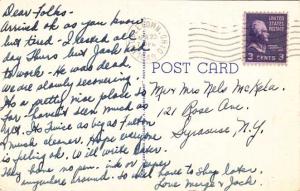 Dear Folks -
Arrived ok as you know
but tired. I loafed all
day Thurs but Jack had
to work. He was dead.
we are slowly recovering.
It's a pretty nice place so
far - haven't seen much as
yet. Its twice as big as Fulton
& much cleaner. Hope everyone
is feeling ok. Will write later.
They have no pen, ink or paper
anywhere around. So will have to shop later.
Love Marge & Jack
POST CARD
UNITED STATES POSTAGE
3 CENTS 3
Mr & Mrs Nelo
121 Rose Ave.
Syracuse, N.Y.